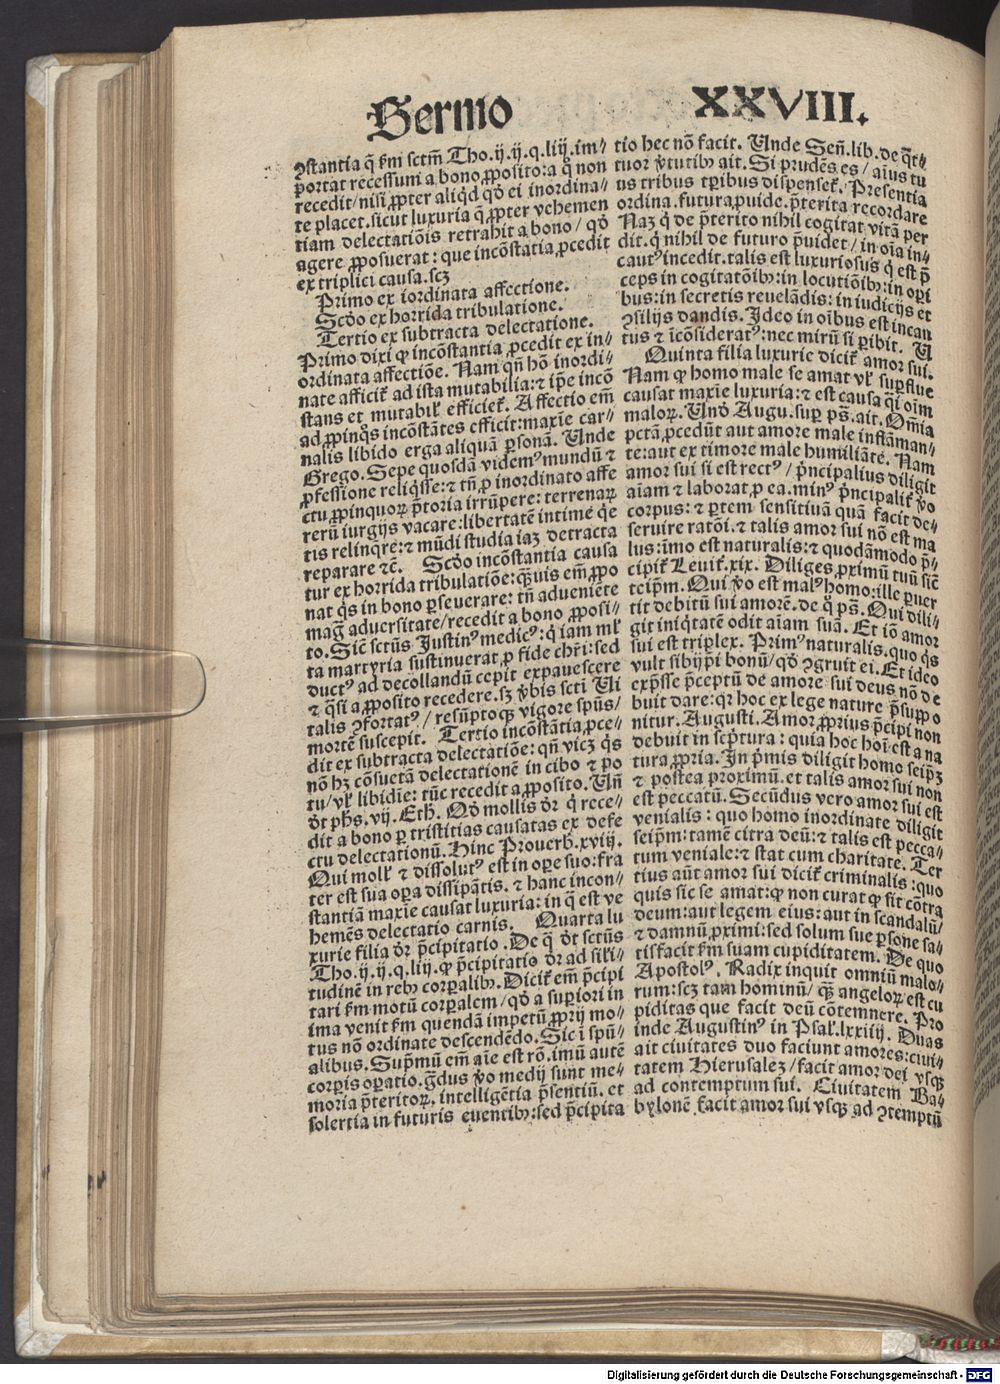 Sermo XXVIII.
ↄstantia q̄ ẜm sctm̄ Tho. ij. ij. q. liij. im⸗
portat recessum a bono ꝓposito: a qͦ non
recedit/ nisi ꝓpter aliqͥd qd̓ ei inordina⸗
te placet. sicut luxuria q̄ ꝓpter vehemen
tiam delectatiōis retrahit a bono/ qd̓
agere ꝓposuerat: que incōstātia ꝓcedit
ex triplici causa. scꝫ
Primo ex iordinata affectione.
Scd̓o ex horrida tribulatione.
Tertio ex subtracta delectatione.
Primo dixi ꝙ incōstantia ꝓcedit ex in⸗
ordinata affectiōe. Nam qn̄ hō inordi⸗
nate afficit᷑ ad ista mutabilia: ⁊ ip̄e incō
stans et mutabil̓ efficiet᷑. Affectio em̄
ad ꝓpinqͦs incōstātes efficit: maxīe car⸗
nalis libido erga aliquā ꝑsonā. Unde
Grego. Sepe quosdā videmꝰ mundū ⁊
ꝓfessione reliqͥsse: ⁊ tn̄ ꝓ inordinato affe
ctu ꝓpinquoꝝ p̄toria irrūpere: terrenaꝝ
rerū iurgijs vacare: libertatē intime qͥe
tis relinqͤre: ⁊ mūdi studia iaꝫ detracta
reparare ⁊c̄. Scd̓o incōstantia causa
tur ex horrida tribulatiōe: qͣꝫuis em̄ ꝓpo
nat qͥs in bono ꝑseuerare: tn̄ adueniēte
mag̃ aduersitate/ recedit a bono ꝓposi⸗
to. Sic̄ sctūs Justinꝰ medicꝰ: qͥ iam ml̓
ta martyria sustinuerat ꝓ fide chr̄i: sed
ductꝰ ad decollandū cepit expauescere
⁊ qͣsi a ꝓposito recedere. sꝫ v̓bis scti Ui
talis ↄfortatꝰ/ resūptoqꝫ vigore spūs/
mortē suscepit. Tertio incōstātia ꝓce⸗
dit ex subtracta delectatiōe: qn̄ vicꝫ qͥs
nō hꝫ cōsuetā delectationē in cibo ⁊ po
tu/ vl̓ libidīe: tūc recedit a ꝓposito. Un̄
d̓t ph̓s. vij. Eth̓. Qd̓ mollis d̓r qͥ rece⸗
dit a bono ꝑ tristitias causatas ex defe
ctu delectationū. Hinc Prouerb. xviij.
Qui moll̓ ⁊ dissolutꝰ est in oꝑe suo: fra
ter est sua oꝑa dissipātis. ⁊ hanc incon⸗
stantiā maxīe causat luxuria: in q̄ est ve
hemēs delectatio carnis. Quarta lu
xurie filia d̓r p̄cipitatio. De q̄ d̓t sctūs
Tho. ij. ij. q. liij. ꝙ p̄cipitatio d̓r ad sil̓i⸗
tudinē in rebꝰ corꝑalibꝰ. Dicit᷑ em̄ p̄cipi
tari ẜm motū corꝑalem/ qd̓ a suꝑiori in
ima venit ẜm quendā impetū ꝓprij mo⸗
tus nō ordinate descendēdo. Sic ī spūi⸗
alibus. Supͥmū em̄ aīe est rō. imū autē
corꝑis oꝑatio. g̃dus v̓o medij sunt me⸗
moria p̄teritoꝝ. intelligētia p̄sentiū. et
solertia in futuris euentibꝰ: sed p̄cipita
tio hec nō facit. Unde Sen̄. lib. de qͣt⸗
tuor v̓tutibꝰ ait. Si prudēs es/ aīus tu
us tribus tꝑibus dispenset᷑. Presentia
ordina. futura ꝓuide. p̄terita recordare
Naꝫ qͥ de p̄terito nihil cogitat vitā per
dit. qͥ nihil de futuro p̄uidet/ in oīa in⸗
cautꝰ incedit. talis est luxuriosus qͥ est p̄
ceps in cogitatōibꝰ: in locutiōibꝰ: in oꝑi
bus: in secretis reuelādis: in iudicijs et
ↄsilijs dandis. Ideo in oībus est incau
tus ⁊ īcōsideratꝰ: nec mirū si ꝑibit. U
Quinta filia luxurie dicit᷑ amor sui.
Nam ꝙ homo male se amat vl̓ suꝑflue
causat maxīe luxuria: ⁊ est causa qͣi oīm
maloꝝ. Und̓ Augu. suꝑ ps̄. ait. Om̄ia
pctā ꝓcedūt aut amore male inflāman⸗
te: aut ex timore male humiliāte. Nam
amor sui si est rectꝰ/ pͥncipalius diligit
aīam ⁊ laborat ꝓ ea. minꝰ pͥncipalit᷑ v̓o
corpus: ⁊ ꝑtem sensitiuā quā facit de⸗
seruire ratōi. ⁊ talis amor sui nō est ma
lus: īmo est naturalis: ⁊ quodāmodo p̄⸗
cipit᷑ Leuit᷑. xix. Diliges ꝓximū tuū sic̄
teip̄m. Qui v̓o est malꝰ homo: ille ꝑuer
tit debitū sui amorē. de qͦ ps̄. Qui dili⸗
git iniqͥtatē odit aīam suā. Et iō amor
sui est triplex. Primꝰ naturalis. quo qͥs
vult sibijp̄i bonū/ qd̓ ↄgruit ei. Et ideo
exp̄sse p̄ceptū de amore sui deus nō de
buit dare: qꝛ hoc ex lege nature p̄suppo
nitur. Augusti. Amor ꝓprius p̄cipi non
debuit in scpͥtura: quia hoc hoī est a na
tura ꝓpria. In pͥmis diligit homo seip̄ꝫ
⁊ postea proximū. et talis amor sui non
est peccatū. Secūdus vero amor sui est
venialis: quo homo inordinate diligit
seip̄m: tamē citra deū: ⁊ talis est pecca⸗
tum veniale: ⁊ stat cum charitate. Ter
tius aūt amor sui dicit᷑ criminalis: quo
quis sic se amat: ꝙ non curat ꝙ sit cōtra
deum: aut legem eius: aut in scandalū/
⁊ damnū ꝓximi: sed solum sue ꝑsone sa⸗
tisfacit ẜm suam cupiditatem. De quo
Apostolꝰ. Radix inquit omniū malo⸗
rum: scꝫ tam hominū/ qͣꝫ angeloꝝ est cu
piditas que facit deū cōtemnere. Pro
inde Augustinꝰ in Psal̓. lxxiiij. Duas
ait ciuitates duo faciunt amores: ciui⸗
tatem Hierusaleꝫ/ facit amor dei vsqꝫ
ad contemptum sui. Ciuitatem Ba⸗
bylonē facit amor sui vsqꝫ ad ↄtemptū
Digitalisierung gefördert durch die Deutsche Forschungsgemeinschaft - DFG